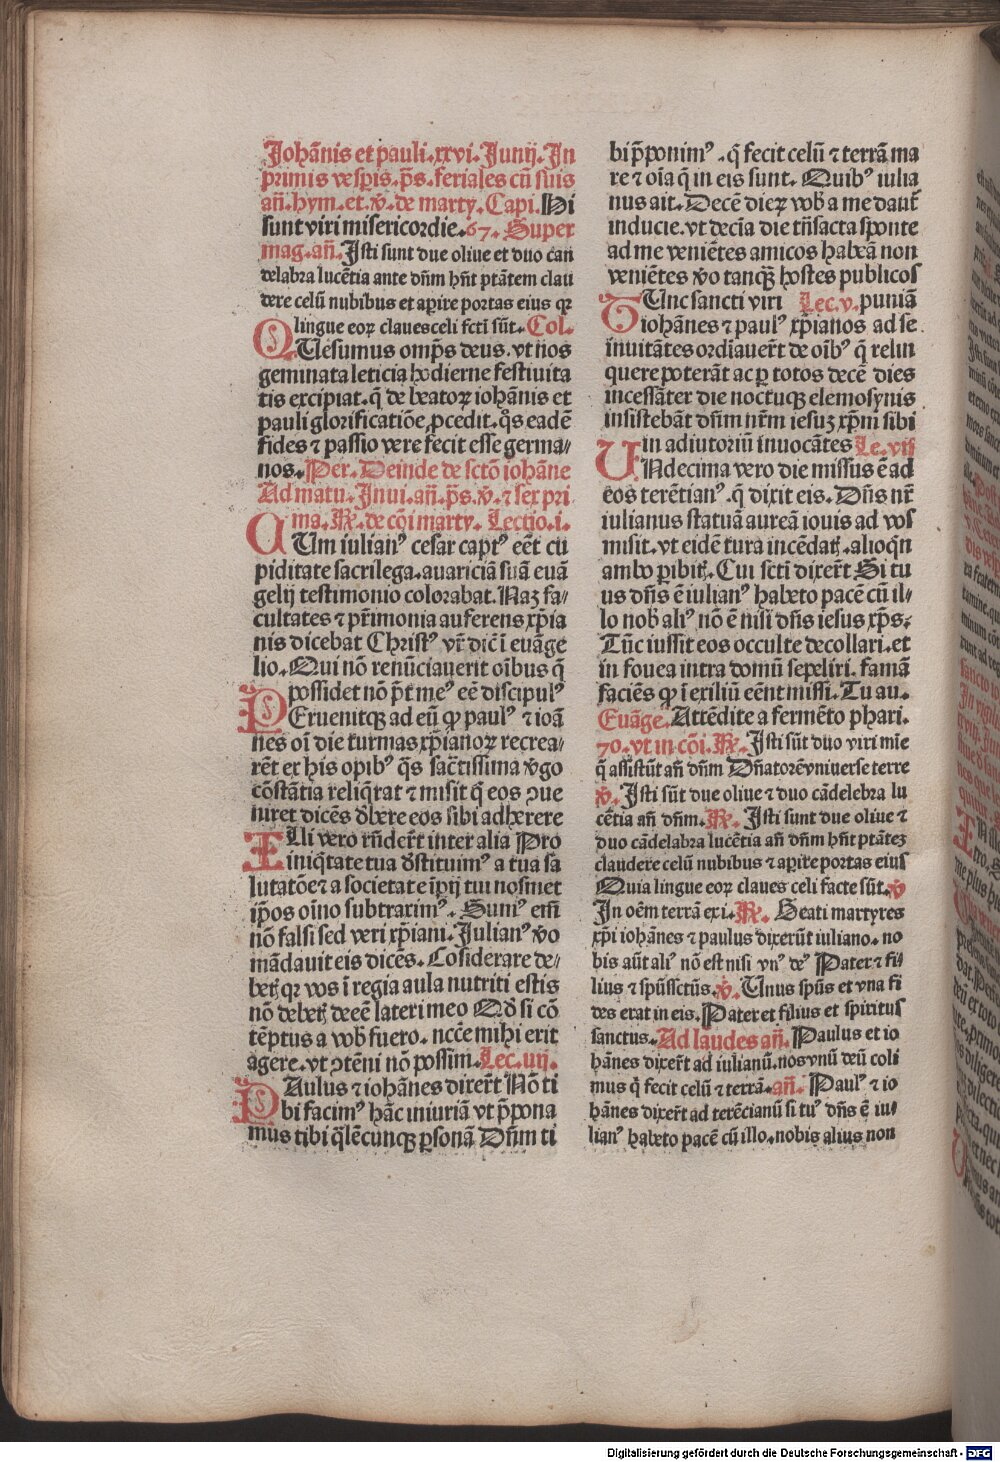 Johānis et pauli. xxvi. Junij. In
primis vesꝑis. p̄s. feriales cū suis
an̄. hym. et. v̄. de marty. Capi. Hi
sunt viri misericordie. 67. Super
mag. an̄. Isti sunt due oliue et duo can
delabra lucētia ante dn̄m hn̄t ptātem clau
dere celū nubibus et aꝑire portas eius qꝛ
lingue eoꝝ claues celi fctī sūt. Col.
QUesumus omp̄s deus. vt nos
geminata leticia hodierne festiuita
tis excipiat. q̄ de beatoꝝ iohānis et
pauli glorificatiōe ꝓcedit. qͦs eadē
fides ⁊ passio vere fecit esse germa⸗
nos. Per. Deinde de sctō iohāne
Ad matu. Inui. an̄. p̄s. v̄. ⁊ sex pri
ma. R̄. de cōi marty. Lectio. i.
CUm iulianꝰ cesar captꝰ eēt cu
piditate sacrilega. auariciā suā euā
gelij testimonio colorabat. Naꝫ fa⸗
cultates ⁊ pr̄imonia auferens xp̄ia
nis dicebat Christꝰ vr̄ dic̄ ī euāge
lio. Qui nō renūciauerit oībus q̄
possidet nō p̄t meꝰ eē discipulꝰ
PEruenitqꝫ ad eū ꝙ paulꝰ ⁊ ioā
nes oī die turmas xp̄ianoꝝ recrea⸗
rēt ex his opibꝰ q̄s sac̄tissima v̄go
cōstātia reliq̄rat ⁊ misit q̄ eos ꝯue
niret dicēs dꝛ̄ere eos sibi adherere
ILli vero rn̄der̄t inter alia Pro
iniq̄tate tua dꝛ̄stituimꝰ a tua sa
lutatōe ⁊ a societate īpij tui nosmet
ip̄os oīno subtraximꝰ. Sumꝰ em̄
nō falsi sed veri xp̄iani. Julianꝰ v̄o
mādauit eis dicēs. Cōsiderare de⸗
betꝭ qꝛ vos ī regia aula nutriti estis
nō debetꝭ deeē lateri meo Qd̄ si cō
tēptus a vob̄ fuero. ncc̄e mihi erit
agere. vt ꝯtēni nō possim. Lec. iiij.
PAulus ⁊ iohānes dixer̄t Nō ti
bi facimꝰ hāc iniuriā vt p̄pona
mus tibi q̄lēcunqꝫ ꝑsonā Dn̄m ti
bi p̄ponimꝰ. q̄ fecit celū ⁊ terrā ma
re ⁊ oīa q̄ in eis sunt. Quibꝰ iulia
nus ait. Decē dieꝝ vob a me dant̄
inducie. vt decīa die trāsacta sponte
ad me veniētes amicos habeā non
veniētes v̄o tanqꝫ hostes publicos
TUnc sancti viri Lec. v. puniā
iohānes ⁊ paulꝰ xp̄ianos ad se
inuitātes ordīauer̄t de oībꝰ q̄ relin
quere poterāt ac ꝑ totos decē dies
incessāter die noctuqꝫ elemosynis
insistebāt dn̄m nr̄m iesuꝫ xp̄m sibi
in adiutoriū inuocātes Le. vi
UNdecima vero die missus ē ad
eos terētianꝰ. q̄ dixit eis. Dn̄s nr̄
iulianus statuā aureā iouis ad vos
misit. vt eidē tura incēdatꝭ. alioq̄n
ambo ꝑibitꝭ. Cui sctī dixer̄t Si tu
us dn̄s ē iulianꝰ habeto pacē cū il⸗
lo nob̄ aliꝰ nō ē nisi dn̄s iesus xp̄s.
Tūc iussit eos occulte decollari. et
in fouea intra domū sepeliri. famā
faciēs ꝙ ī exiliū eēnt missi. Tu au.
Euāge. Attēdite a fermēto phari.
70. vt in cōi. R̄. Isti sūt duo viri mīe
q̄ assistūt an̄ dn̄m Dn̄atorē vniuerse terre
v̄. Isti sūt due oliue ⁊ duo cādelebra lu
cētia an̄ dn̄m. R̄. Isti sunt due oliue ⁊
duo cādelabra lucētia an̄ dn̄m hn̄t ptāteꝫ
claudere celū nubibus ⁊ aꝑire portas eius
Quia lingue eoꝝ claues celi facte sūt. v̄
In oēm terrā exi. R̄. Beati martyres
xp̄i iohānes ⁊ paulus dixerūt iuliano. no
bis aūt aliꝰ nō est nisi vnꝰ deꝰ Pater ⁊ fi⸗
lius ⁊ sp̄ūssctūs. v̄. Unus sp̄us et vna fi
des erat in eis. Pater et filius et spiritus
sanctus. Ad laudes an̄. Paulus et io
hānes dixer̄t ad iulianū. nos vnū deū coli
mus q̄ fecit celū ⁊ terrā. an̄. Paulꝰ ⁊ io
hānes dixer̄t ad terēcianū si tuꝰ dn̄s ē iu⸗
lianꝰ habeto pacē cū illo. nobis alius non
Digitalisierung gefördert durch die Deutsche Forschungsgemeinschaft - DFG